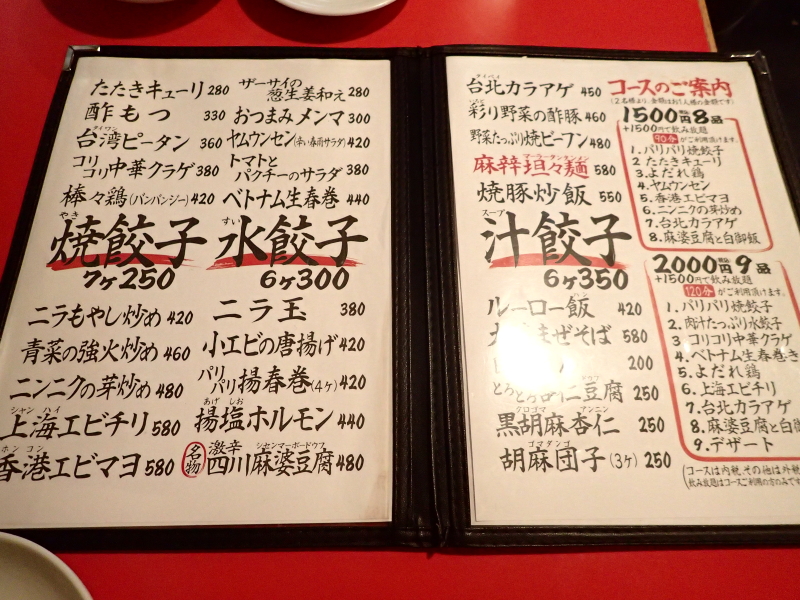 たたきキューリ 280
酢もつ 330
タイワン
台湾ピータン 360
コリコリ中華クラゲ 380
棒々鶏(バンバンジー) 420
ザーサイの葱生姜和え 280
おつまみメンマ 300
ヤムウンセン(辛い春雨サラダ) 420
トマトとパクチーのサラダ 380
ベトナム生春巻 440
やき
焼餃子
7ヶ250
すい
水餃子
6ヶ300
ニラもやし炒め 420
青菜の強火炒め 460
ニンニクの芽炒め 480
シャンハイ
上海エビチリ 580
ホンコン
香港エビマヨ 580
ニラ玉 380
小エビの唐揚げ 420
パリパリ揚春巻(4ヶ) 420
あげしお
揚塩ホルモン 440
名物
激辛
シセンマーボードウフ
四川麻婆豆腐 480
タイペイ
台北カラアゲ 450
彩り野菜の酢豚 460
野菜たっぷり焼ビーフン 480
麻辣坦々麺 580
焼豚炒飯 550
スープ
汁餃子
6ヶ350
ルーロー飯 420
まぜそば 580
200
とろとろ杏仁豆腐 250
クロゴマ アンニン
黒胡麻杏仁 250
ゴマダンゴ
胡麻団子(3ヶ) 250
コースのご案内
(2名様より、金額はお1人様の金額です)
1500円 8品
+1500円で飲み放題
90分がご利用頂けます。
1. パリパリ焼餃子
2 たたきキューリ
3. よだれ鶏
4. ヤムウンセン
5. 香港エビマヨ
6. ニンニクの芽炒め
7. 台北カラアゲ
8. 麻婆豆腐と白御飯
2000円 9品
+1500円で飲み放題
120分がご利用頂けます。
1. パリパリ焼餃子
2. 肉汁たっぷり水餃子
3 コリコリ中華クラゲ
4. ベトナム生春巻き
5. よだれ鶏
6. 上海エビチリ
7. 台北カラアゲ
8. 麻婆豆腐と白御
9. デザート
(コースは内税、その他は外税
飲み放題はコースご利用の方のみです